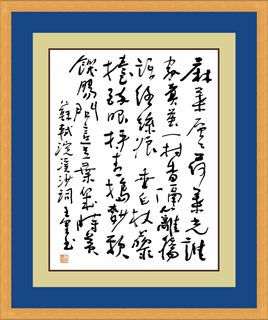 麻葉層々苘葉光誰
家煮繭一村香隔籬嬌
語絡絲娘垂白杖藜
抬醉眼捋青搗麨軟
饑腸問言豆葉幾時黃
蘇軾浣溪沙詞王書